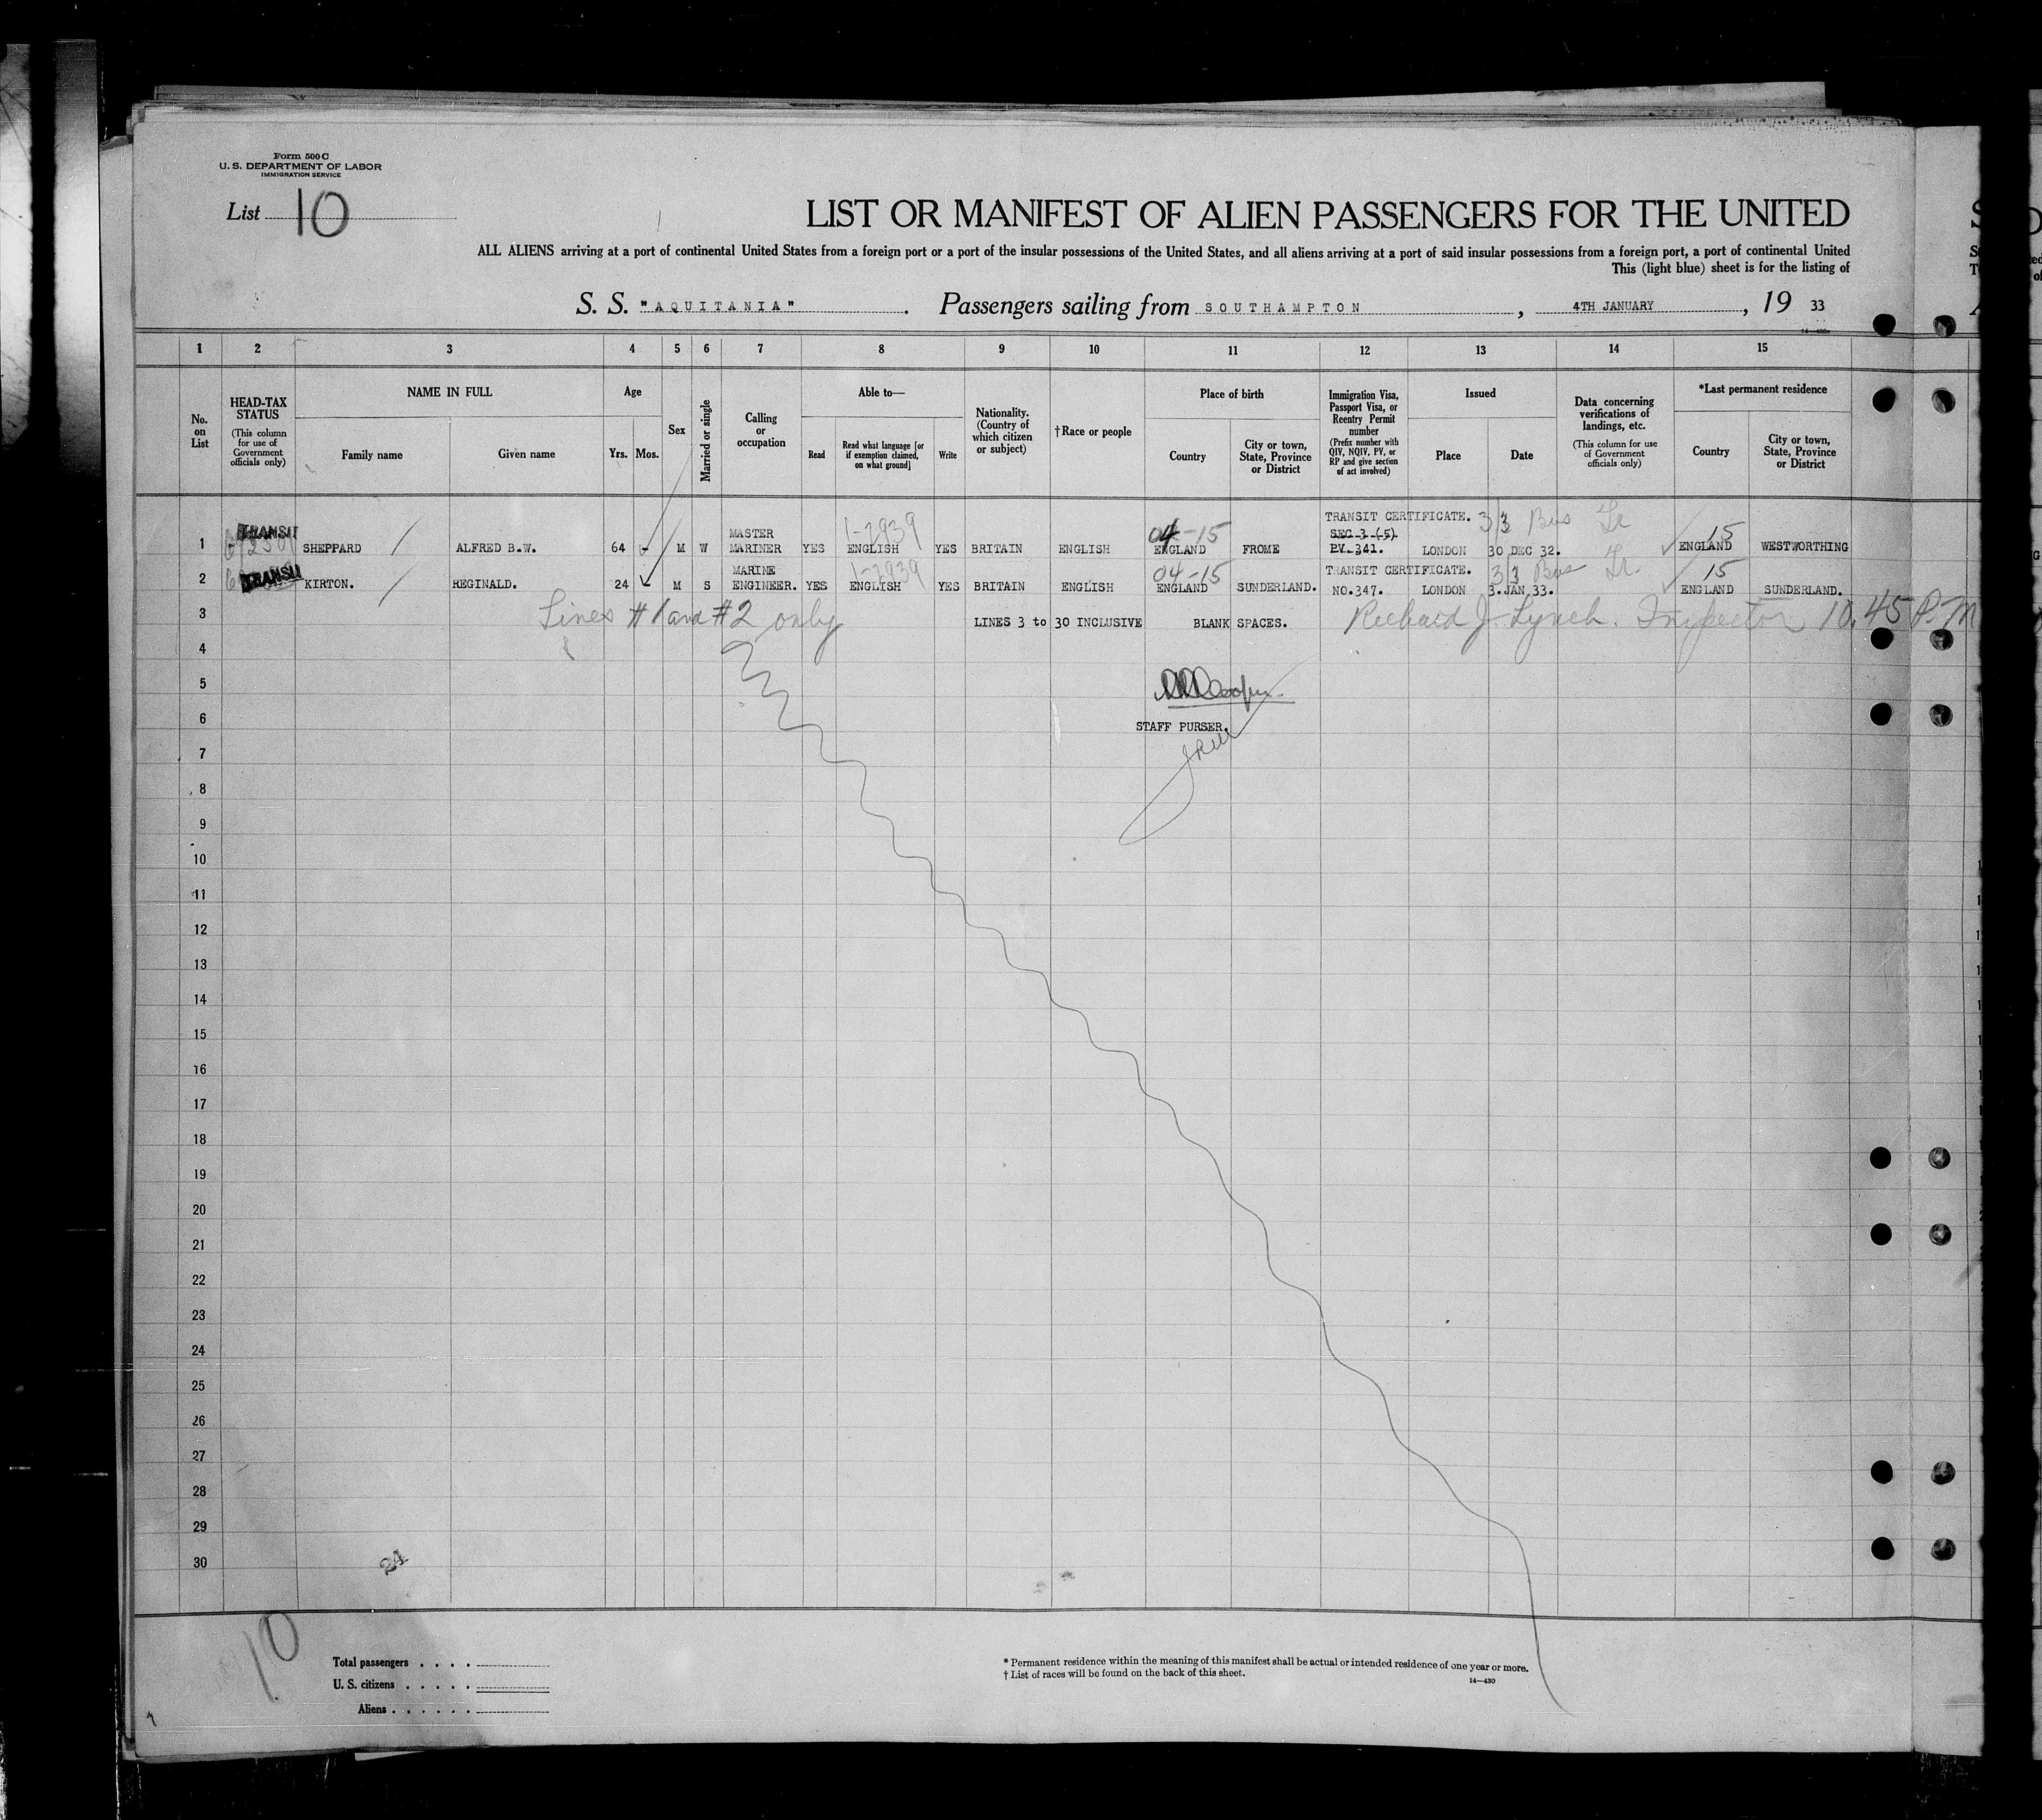 Form 500 C
U. S. DEPARTMENT OF LABOR
IMMIGRATION SERVICE
List 10
LIST OR MANIFEST OF ALIEN PASSENGERS FOR THE UNITED
ALL ALIENS arriving at a port of continental United States from a foreign port or a port of the insular possessions of the United States, and all aliens arriving at a port of said insular possessions from a foreign port, a port of continental United
This (light blue) sheet is for the listing of
S. S. "AQUITANIA". Passengers sailing from SOUTHAMPTON, 4TH JANUARY, 19 33
1 2 3 4 5 6 7 8 9 10 11 12 13 14 15
No. on List
HEAD-TAX STATUS
(This column for use of Government officials only)
NAME IN FULL
Family name
Given name
Age
Yrs.
Mos.
Sex
Married or single
Calling or occupation
Able to—
Read
Read what language [or if exemption claimed, on what ground]
Write
Nationality. (Country of which citizen or subject)
†Race or people
Place of birth
Country
City or town, State, Province or District
Immigration Visa, Passport Visa, or Reentry Permit number
(Prefix number with QIV, NQIV, PV, or RP and give section of act involved)
Issued
Place
Date
Data concerning verifications of landings, etc.
(This column for use of Government officials only)
*Last permanent residence
Country
City or town, State, Province or District
1 TRANSIT SHEPPARD ALFRED B.W. 64 M W MASTER MARINER YES 1-2939 ENGLISH YES BRITAIN ENGLISH 04-15 ENGLAND FROME TRANSIT CERTIFICATE. SEC 3 (5). PV 341. LONDON 30 DEC 32. 3/3 Bus 15 ENGLAND WESTWORTHING
2 TRANSIT KIRTON. REGINALD. 24 M S MARINE ENGINEER. YES 1-2939 ENGLISH YES BRITAIN ENGLISH 04-15 ENGLAND SUNDERLAND. TRANSIT CERTIFICATE. NO.347. LONDON 3.JAN 33. 3/3 Bus 15 ENGLAND SUNDERLAND.
3 Lines #1 and #2 only LINES 3 to 30 INCLUSIVE BLANK SPACES. Richard J. Lynch. Inspector 10.45 P.M
4
5
6 STAFF PURSER.
7
8
9
10
11
12
13
14
15
16
17
18
19
20
21
22
23
24
25
26
27
28
29
30
24
10
Total passengers
U. S. citizens
Aliens
* Permanent residence within the meaning of this manifest shall be actual or intended residence of one year or more.
† List of races will be found on the back of this sheet.
14—430